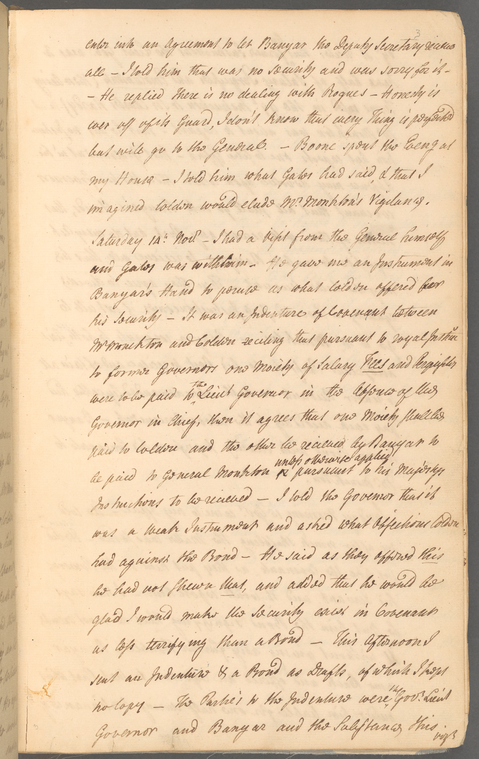 3
enter into an Agreement to let Banyar the Deputy Secretary receive
all – I told him that was no security and was sorry for it –
– He replied there is no dealing with Rogues – Honesty is
ever off of its Guard, I don't know that every Thing is perfected
but will go to the General. – Boone spent the Eveng at
my House – I told him what Gates had said, & that I
imagined Colden would elude Mr Monckton's Vigilance.
Saturday 14th Novr – I had a visit from the General himself
and Gates was with him – He gave me an Instrument in
Banyar's Hand to peruse as what Colden offered for
his Security – It was an Indenture of Covenant between
Mr Monckton and Colden reciting that pursuant to royal Instrns
to former Governors one Moiety of Salary Fees and Perquisites
were to be paid to the Lieut Governor in the Absence of the
Governor in Chief, then it agrees that one Moiety shall be
paid to Colden and the other be received by Banyar to
be paid to General Monckton unless otherwise applied pursuant to his Majestys
Instructions to be received – I told the Governor that it
was a weak Instrument and asked what Objections Colden
had against the Bond – He said as they offered this
he had not shewn that, and added that he would be
glad I would make the Security exist in Covenant
as less terrifying than a Bond – This Afternoon I
sent an Indenture & a Bond as Drafts, of which I kept
no Copy – The Parties to the Indenture were the Govr Lieut
Governor and Banyar and the Substance this.